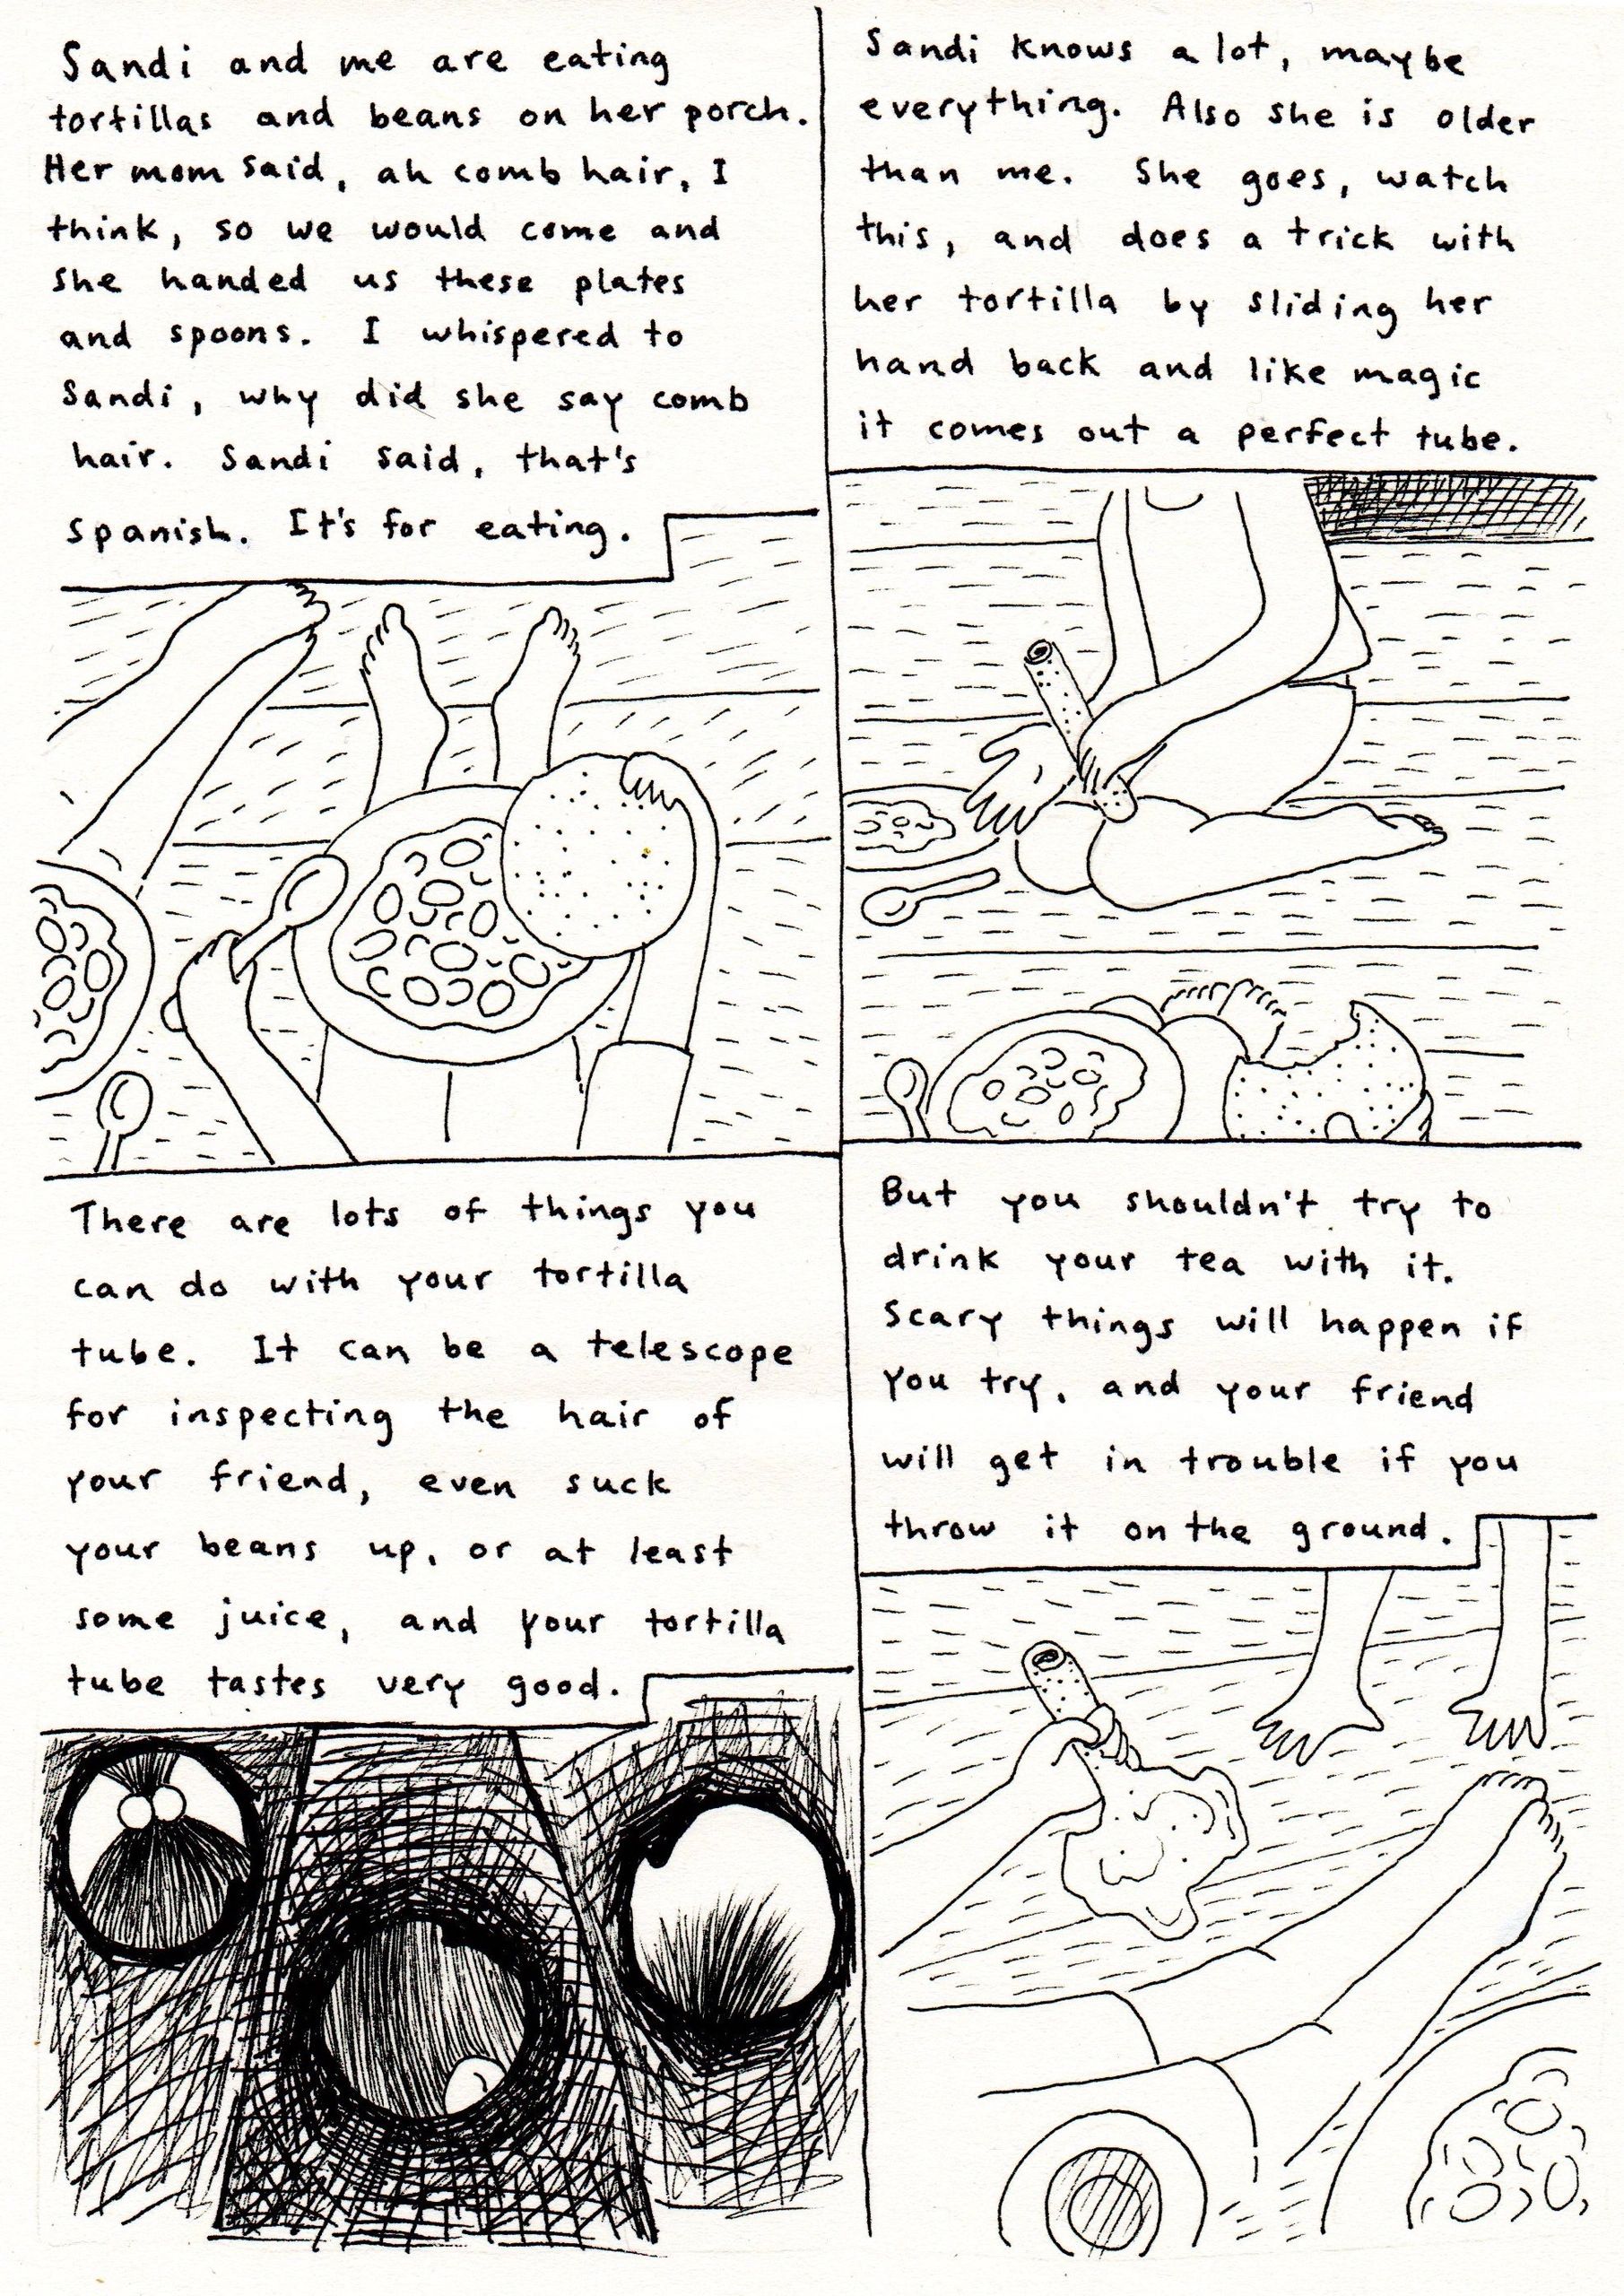 Sandi and me are eating
tortillas and beans on her porch.
Her mom said, ah comb hair, I
think, so we would come and
she handed us these plates
and spoons. I whispered to
Sandi, why did she say comb
hair. Sandi said, that's
spanish. It's for eating.
Sandi knows a lot, maybe
everything. Also she is older
than me. She goes, watch
this, and does a trick with
her tortilla by sliding her
hand back and like magic
it comes out a perfect tube.
There are lots of things you
can do with your tortilla
tube. It can be a telescope
for inspecting the hair of
your friend, even suck
your beans up, or at least
some juice, and your tortilla
tube tastes very good.
But you shouldn't try to
drink your tea with it.
Scary things will happen if
you try, and your friend
will get in trouble if you
throw it on the ground.